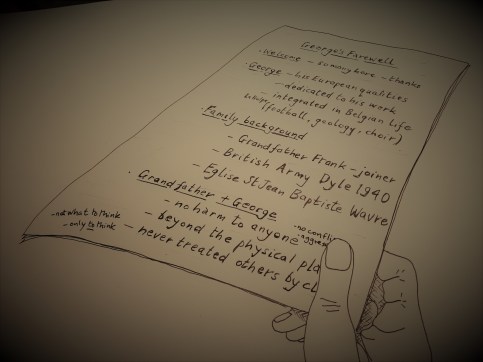 George's Farewell
• Welcome - so many here - thanks
• George - his European qualities
- dedicated to his work
- integrated in Belgian life
(football, geology, choir)
• Family background
- Grandfather Frank - joiner
- British Army Dyle 1940
- Eglise St Jean Baptiste Wavre
• Grandfather + George
- no harm to anyone
- no confli
- aggre
- beyond the physical pla
- never treated others by cl
- not what to think
- only to think